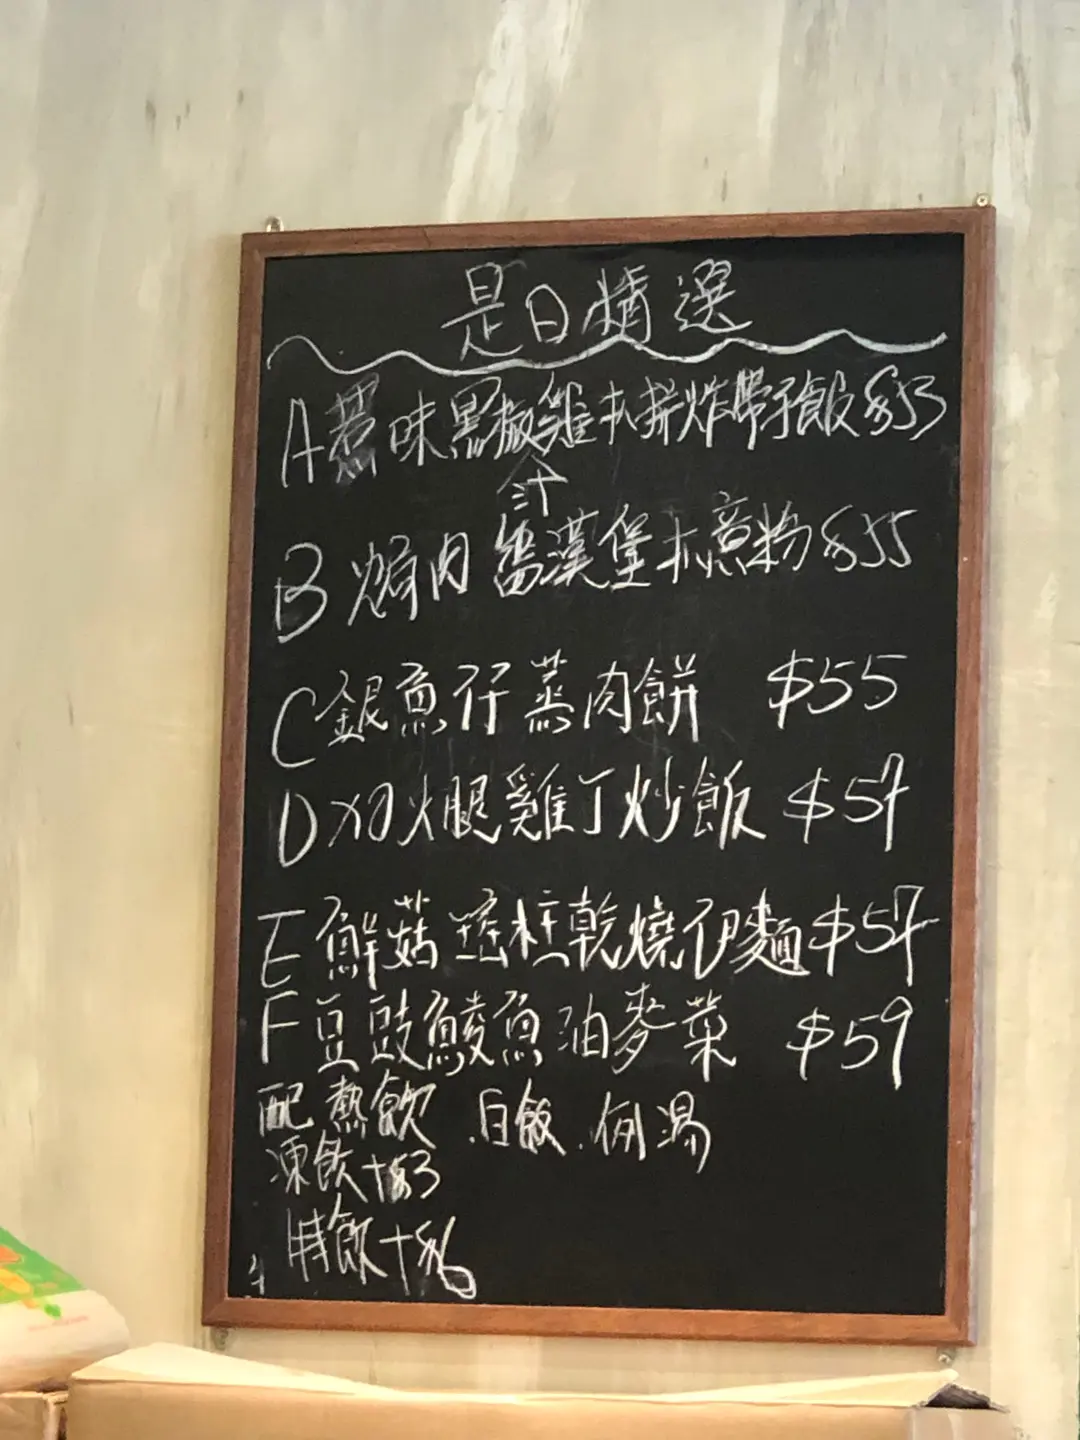 是日精選
A 惹味黑椒雞扒拼炸帶子飯 $53
B 焗肉醬漢堡扒意粉 $55
C 銀魚仔蒸肉餅 $55
D 火腿雞丁炒飯 $57
E 鮮菇瑤柱乾燒伊麵 $57
F 豆豉鯪魚油麥菜 $59
配熱飲.白飯.例湯
凍飲+$3
特飲+$6